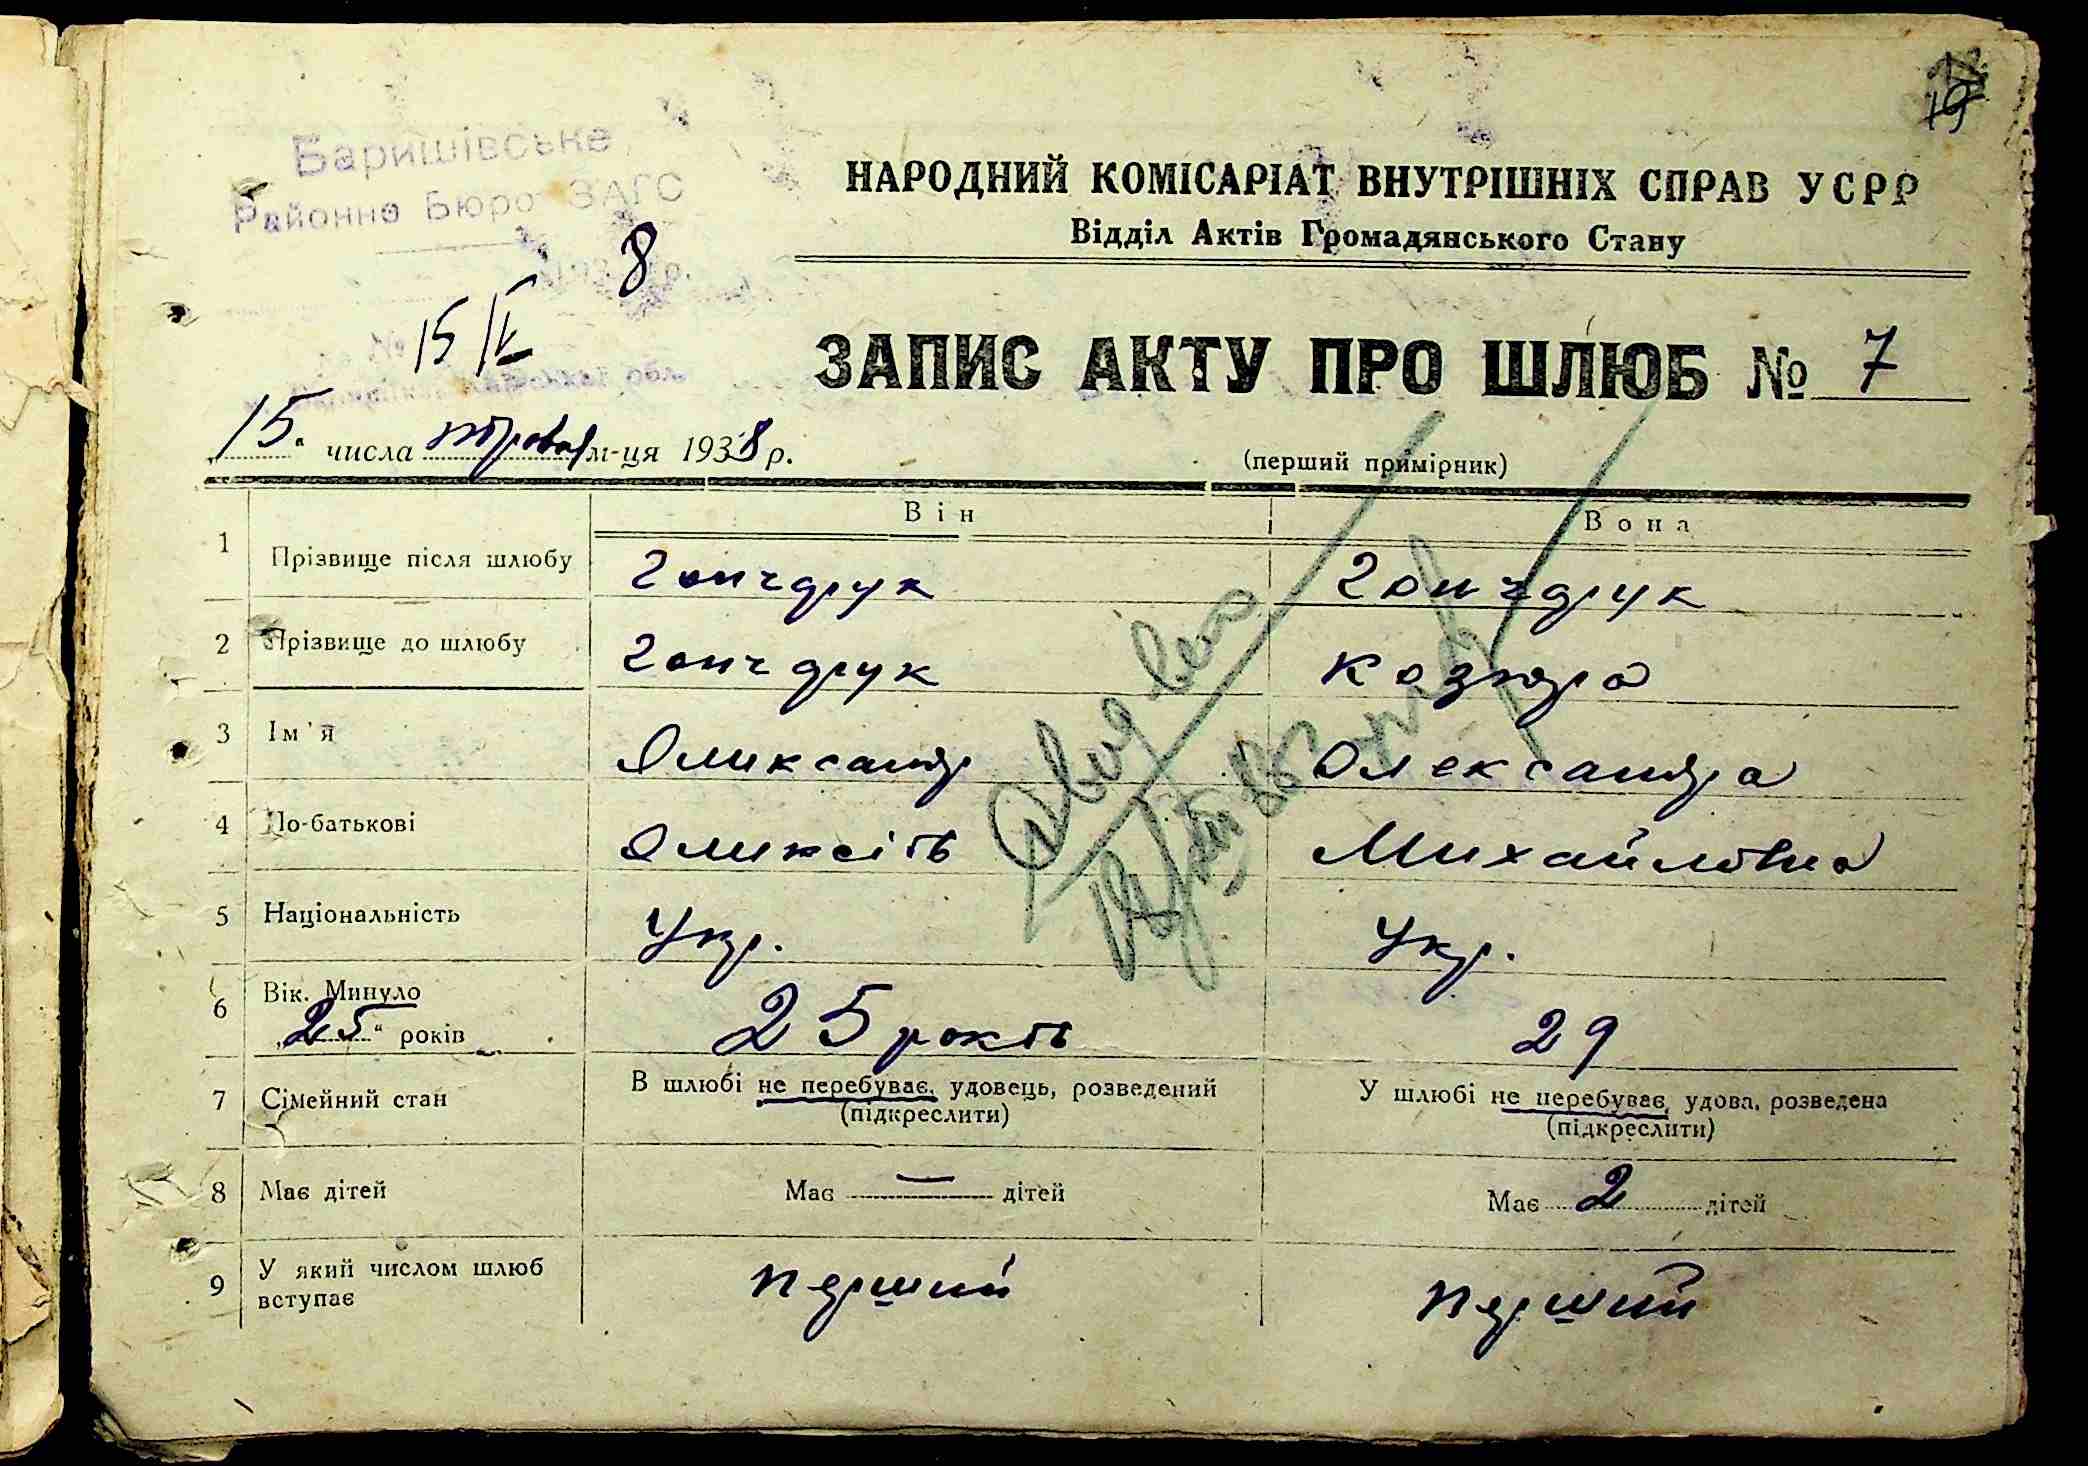 19
Баришівське
Районне Бюро ЗАГС
НАРОДНИЙ КОМІСАРІАТ ВНУТРІШНІХ СПРАВ УСРР
Відділ Актів Громадянського Стану
8
15/V
ЗАПИС АКТУ ПРО ШЛЮБ № 7
15 числа травня м-ця 1938 р.
(перший примірник)
Він Вона
1 Прізвище після шлюбу Гончарук Гончарук
2 Прізвище до шлюбу Гончарук Козюра
3 Ім'я Олександр Олександра
4 По-батькові Михайловна
5 Національність Укр. Укр.
6 Вік. Минуло
„25" років 25 років 29
7 Сімейний стан В шлюбі не перебуває, удовець, розведений У шлюбі не перебуває, удова, розведена
(підкреслити) (підкреслити)
8 Має дітей Має — дітей Має 2 дітей
9 У який числом шлюб
вступає перший перший